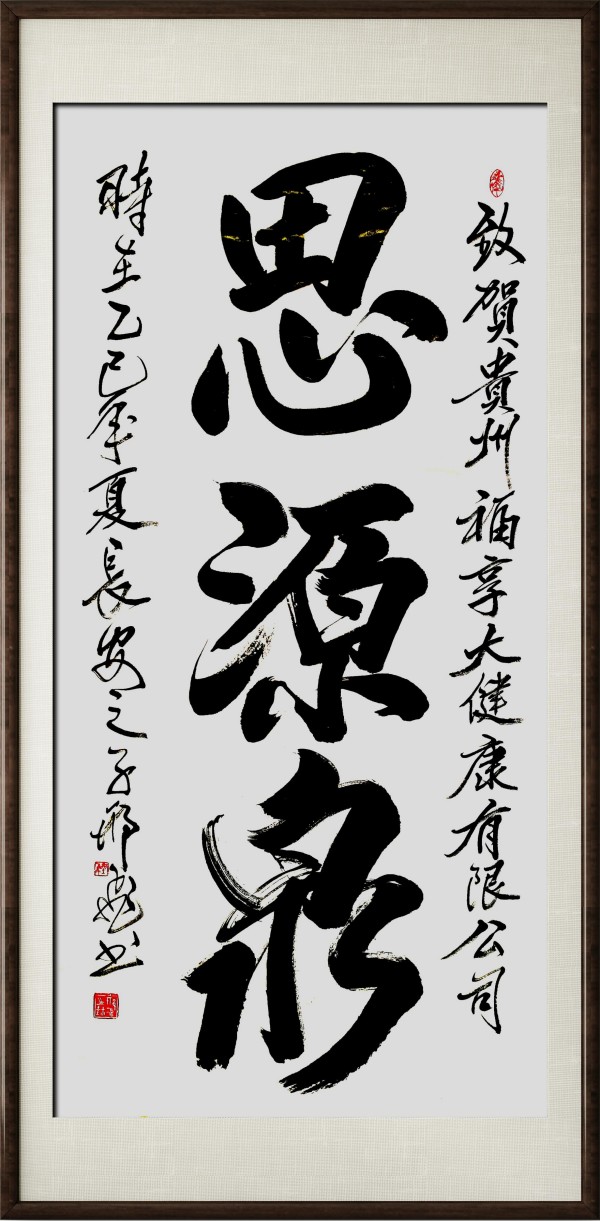 致賀貴州福享大健康有限公司
思源泉
時在乙巳年夏長安之子鄉逸书